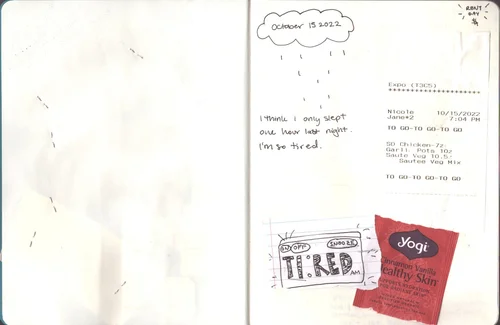 October 15 2022
RENT
DAY
I think I only slept
one hour last night.
I'm so tired.
Expo (T3C5)
Nicole 10/15/2022
Jane*2 7:04 PM
TO GO-TO GO-TO GO
SO Chicken-7z
Garlic Pots 10z
Saute Veg 10.5z
Sautee Veg Mix
TO GO-TO GO-TO GO
ON OFF SNOOZE
TI:RED AM
yogi
Cinnamon Vanilla
Healthy Skin